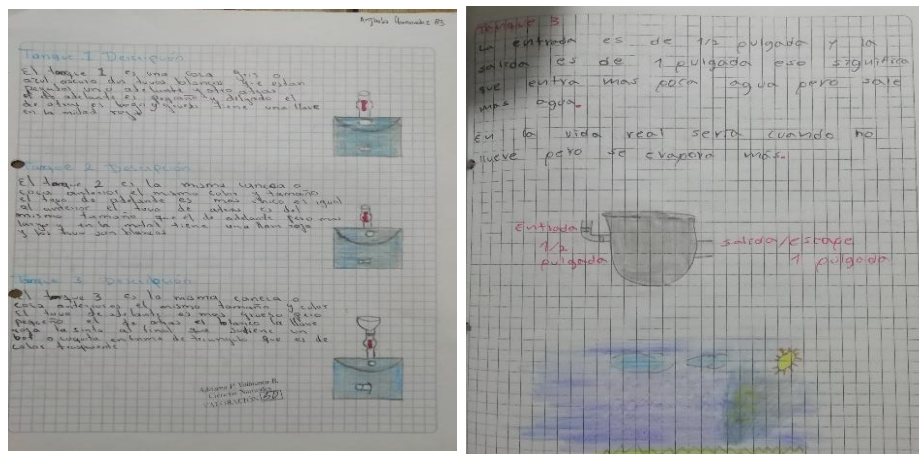 Tanque 1 Descripción
El tanque 1 es una cosa gris o
azul oscuro dos tuvos blancos que estan
pegados uno adelante y otro atras
el de adelante es pequeño y delgado el
de atras es largo y grueso tiene una llave
en la mitad roja
Tanque 2 Descripción
El tanque 2 es la misma caneca o
cosa anterior el mismo color y tamaño
El tuvo de adelante es mas chico es igual
al anterior el tuvo de atras es del
mismo tamaño que el de adelante pero mas
largo y en la mitad tiene una roja
y los tuvo son blancos
Tanque 3 Descripción
El tanque 3 es la misma caneca o
cosa anteriores el mismo tamaño y color
El tuvo de adelante es mas grueso pero
pequeño el de atras es blanco la llave
roja la cinta al final que un
en forma de triangulo que es de
color
Ciencias Naturales
VALORACION: 50
Tanque 3
La entrada es de 1/2 pulgada y la
salida es de 1 pulgada eso significa
que entra mas poca agua pero sale
mas agua.
En la vida real seria cuando no
llueve pero se evapora más.
Entrada
1/2
pulgada
salida/escape
1 pulgada